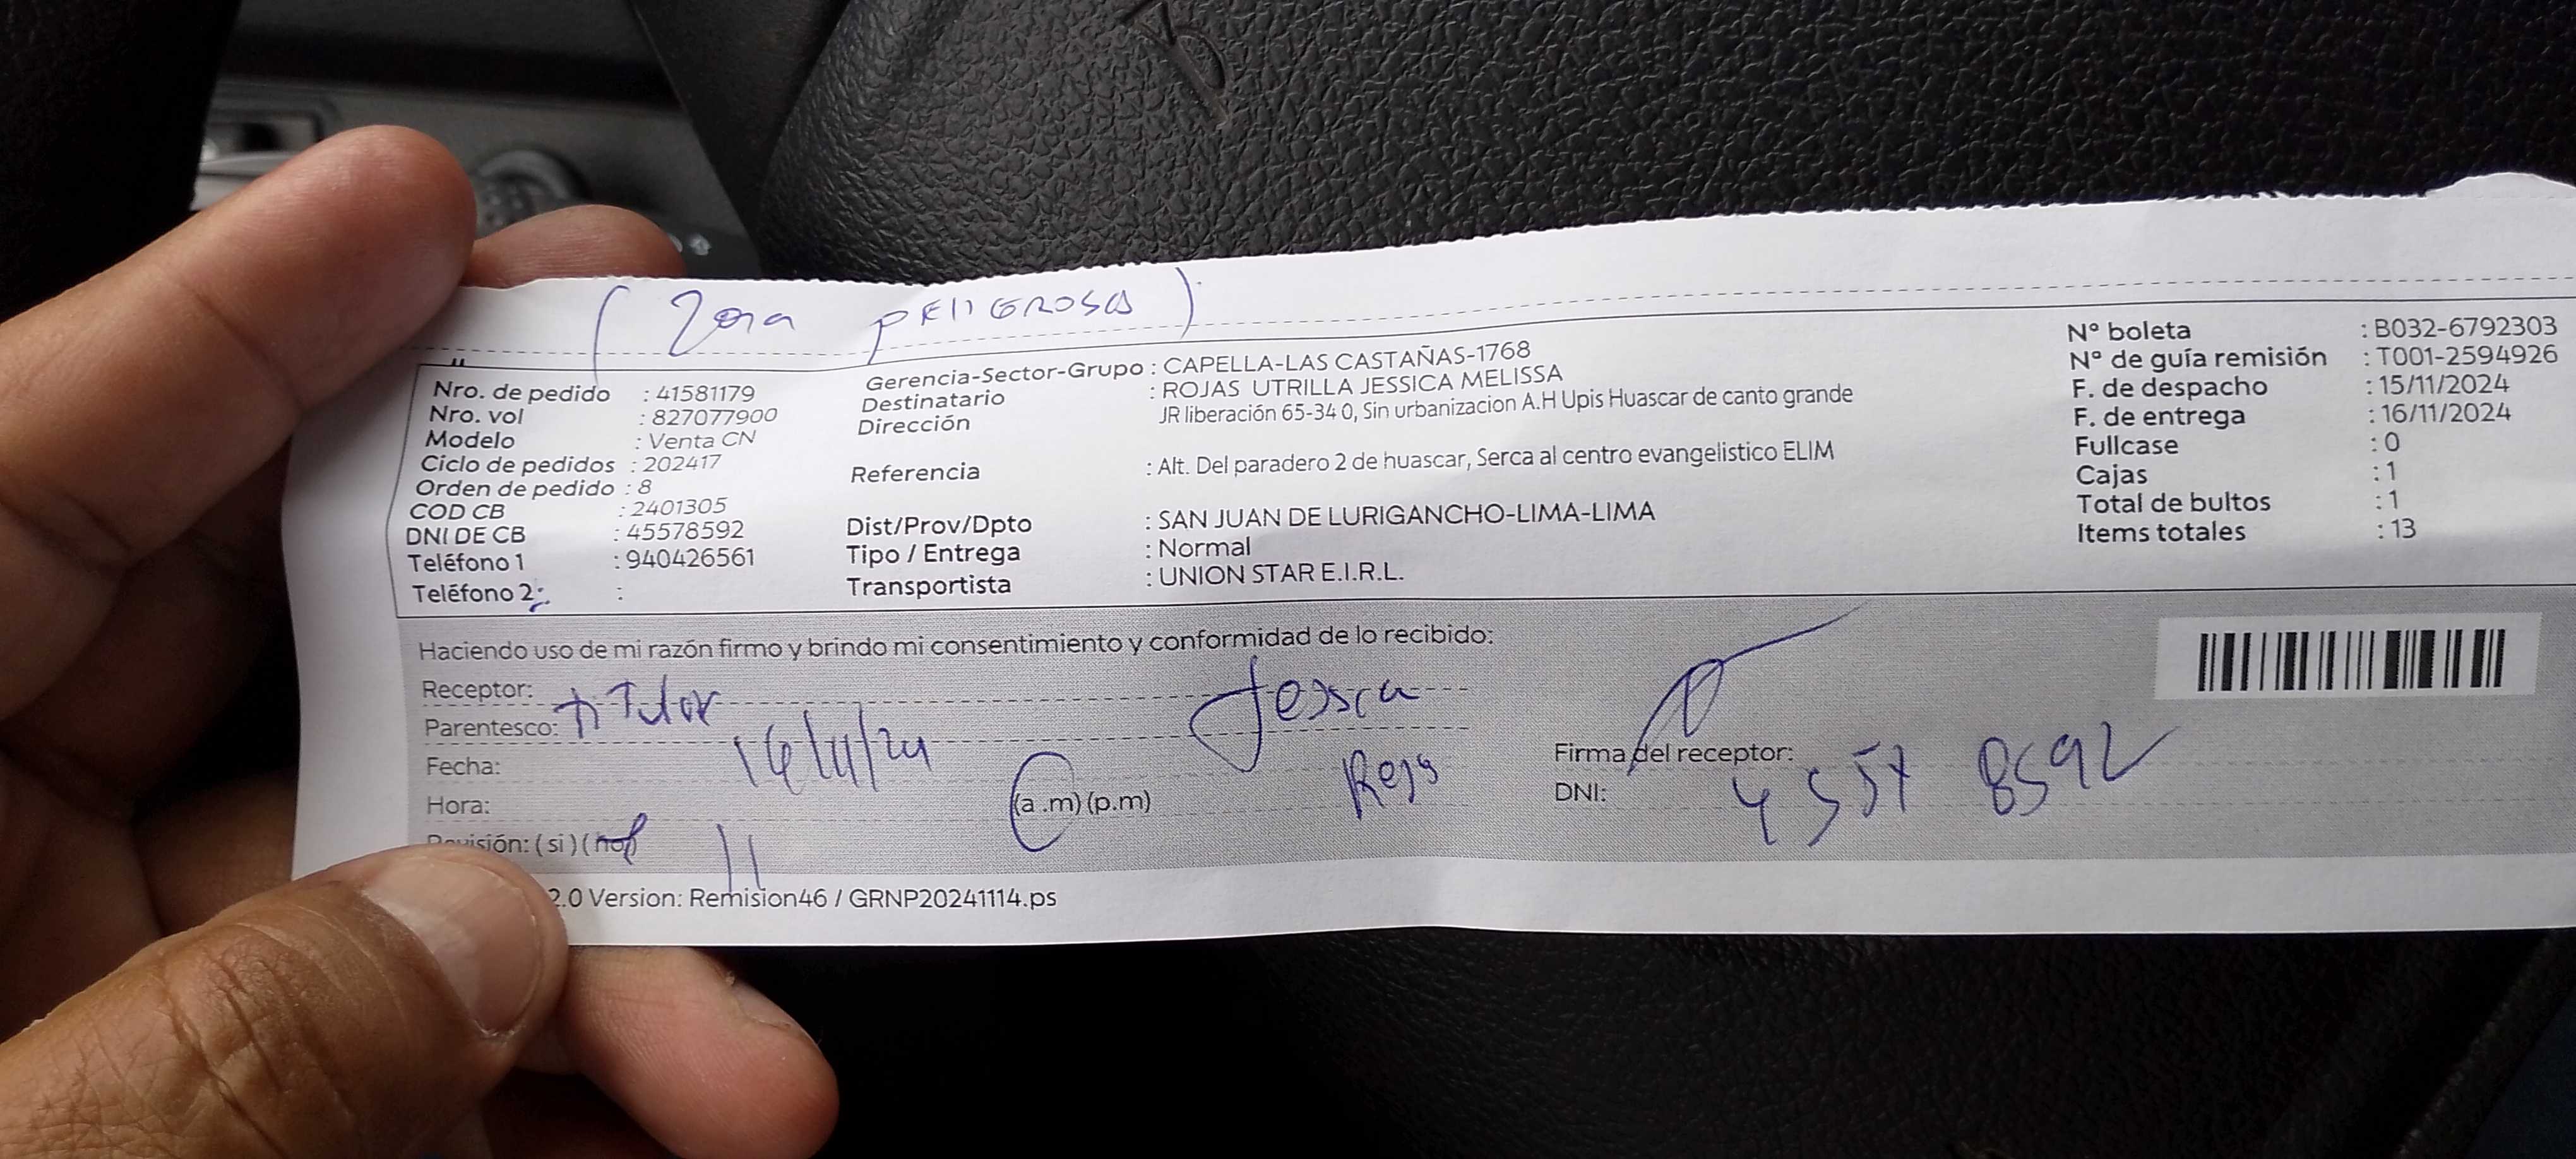 ( Zona PELIGROSA )
Nro. de pedido : 41581179
Nro. vol : 827077900
Modelo : Venta CN
Ciclo de pedidos : 202417
Orden de pedido : 8
COD CB : 2401305
DNI DE CB : 45578592
Teléfono 1 : 940426561
Teléfono 2: :
Gerencia-Sector-Grupo : CAPELLA-LAS CASTAÑAS-1768
Destinatario : ROJAS UTRILLA JESSICA MELISSA
Dirección JR liberación 65-34 0, Sin urbanizacion A.H Upis Huascar de canto grande
Referencia : Alt. Del paradero 2 de huascar, Serca al centro evangelistico ELIM
Dist/Prov/Dpto : SAN JUAN DE LURIGANCHO-LIMA-LIMA
Tipo / Entrega : Normal
Transportista : UNION STAR E.I.R.L.
Nº boleta : B032-6792303
Nº de guía remisión : T001-2594926
F. de despacho : 15/11/2024
F. de entrega : 16/11/2024
Fullcase : 0
Cajas : 1
Total de bultos : 1
Items totales : 13
Haciendo uso de mi razón firmo y brindo mi consentimiento y conformidad de lo recibido:
Receptor: Jessica
Parentesco: TiTular
Fecha: 16/11/24
Rojas
Hora: 11 (a .m) (p.m)
Revisión: ( si ) ( no )
Firma del receptor:
DNI: 4557 8592
2.0 Version: Remision46 / GRNP20241114.ps